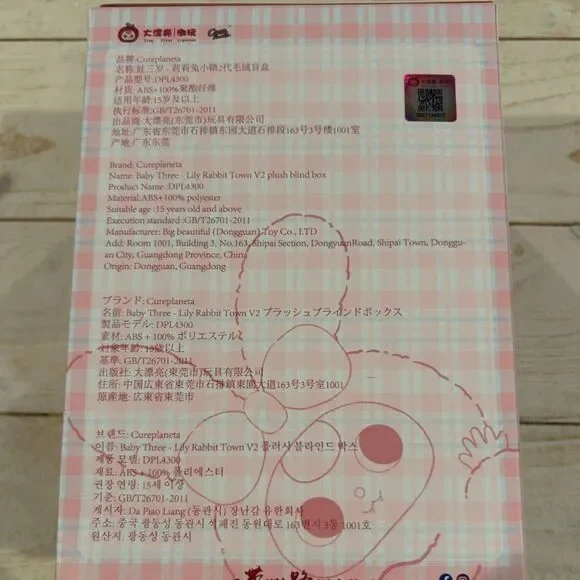 大漂亮|潮玩
品牌:Cureplaneta
名称:娃三岁 - 莉莉兔小镇2代毛绒盲盒
产品型号:DPL4300
材质: ABS+100%聚酯纤维
适用年龄:15岁及以上
执行标准:GB/T26701-2011
出品商:大漂亮(东莞市)玩具有限公司
地址:广东省东莞市石排镇东园大道石排段163号3号楼1001室
产地:广东东莞
Brand: Cureplaneta
Name: Baby Three - Lily Rabbit Town V2 plush blind box
Product Name : DPL4300
Material:ABS+100% polyester
Suitable age :15 years old and above
Execution standard :GB/T26701-2011
Manufacturer: Big beautiful (Dongguan) Toy Co., LTD
Add: Room 1001, Building 3, No.163, Shipai Section, DongyuanRoad, Shipai Town, Donggu-
an City, Guangdong Province, China
Origin: Dongguan, Guangdong
ブランド: Cureplaneta
名前: Baby Three - Lily Rabbit Town V2 プラッシュブラインドボックス
製品モデル: DPL4300
素材: ABS + 100% ポリエステル
対象年齢: 15歳以上
基準: GB/T26701-2011
出版社: 大漂亮(東莞市)玩具有限公司
住所: 中国広東省東莞市石排鎮東園大道163号3号室1001
原産地: 広東省東莞市
브랜드: Cureplaneta
이름: Baby Three - Lily Rabbit Town V2 플러시 블라인드 박스
제품 모델: DPL4300
재료: ABS + 100% 폴리에스터
권장 연령: 15세 이상
기준: GB/T26701-2011
게시자: Da Piao Liang (동관시) 장난감 유한회사
주소: 중국 광동성 동관시 석패진 동원대로 163번지 3동 1001호
원산지: 광동성 동관시